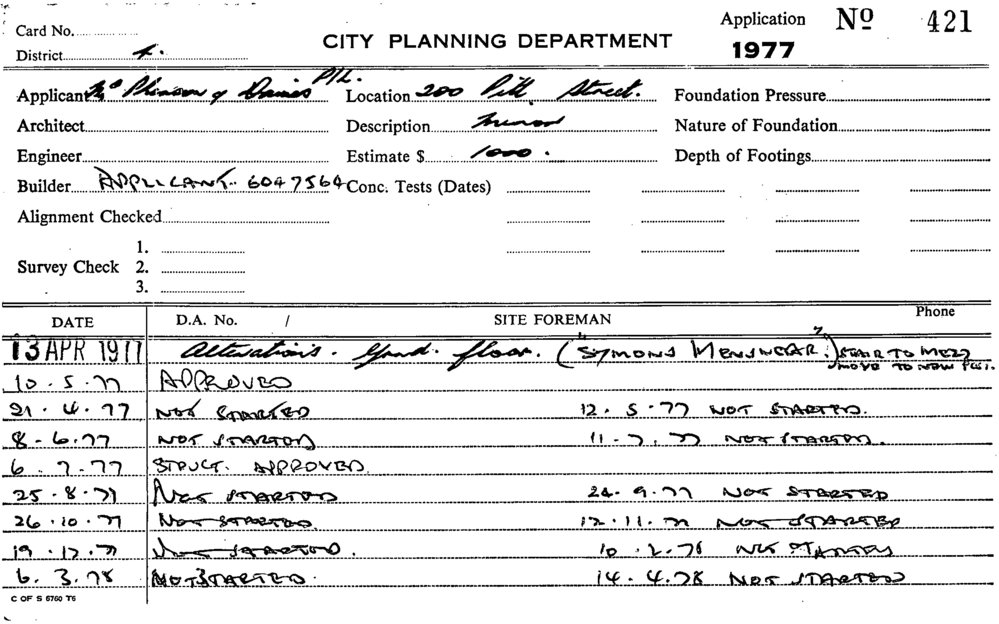 Card No.
District 4.
CITY PLANNING DEPARTMENT
Application No 421
1977
Applicant & Davies P/L.
Location 200 Pitt Street.
Foundation Pressure
Architect
Description
Nature of Foundation
Engineer
Estimate $ 1000.
Depth of Footings
Builder APPLICANT. 6047564
Conc. Tests (Dates)
Alignment Checked
Survey Check
1.
2.
3.
DATE D.A. No. / SITE FOREMAN Phone
13 APR 1977 Alterations. Grnd. floor. ("SYMONS MENSWEAR") STAIR TO MEZZ
MOVE TO NEW POS.
10.5.77 APPROVED
21.4.77 NOT STARTED 12.5.77 NOT STARTED.
8-6.77 NOT STARTED 11-7.77 NOT STARTED.
6.7.77 STRUCT. APPROVED.
25.8.77 NOT STARTED 24.9.77 NOT STARTED
26.10.77 NOT STARTED. 12.11.77 NOT STARTED
19.12.77 NOT STARTED. 10.2.78 NOT STARTED
6.3.78 NOT STARTED. 14.4.78 NOT STARTED
C OF S 5760 T6